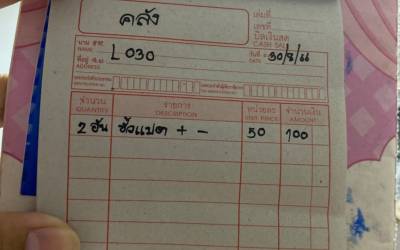 คลัง
เล่มที่
เลขที่
บิลเงินสด
CASH SALE
นาม
NAME
L 030
วันที่
DATE
30/8/66
ที่อยู่
ADDRESS
จำนวน รายการ หน่วยละ จำนวนเงิน
QUANTITY DESCRIPTION UNIT PRICE AMOUNT
2 อัน ขั้วแบต + - 50 100